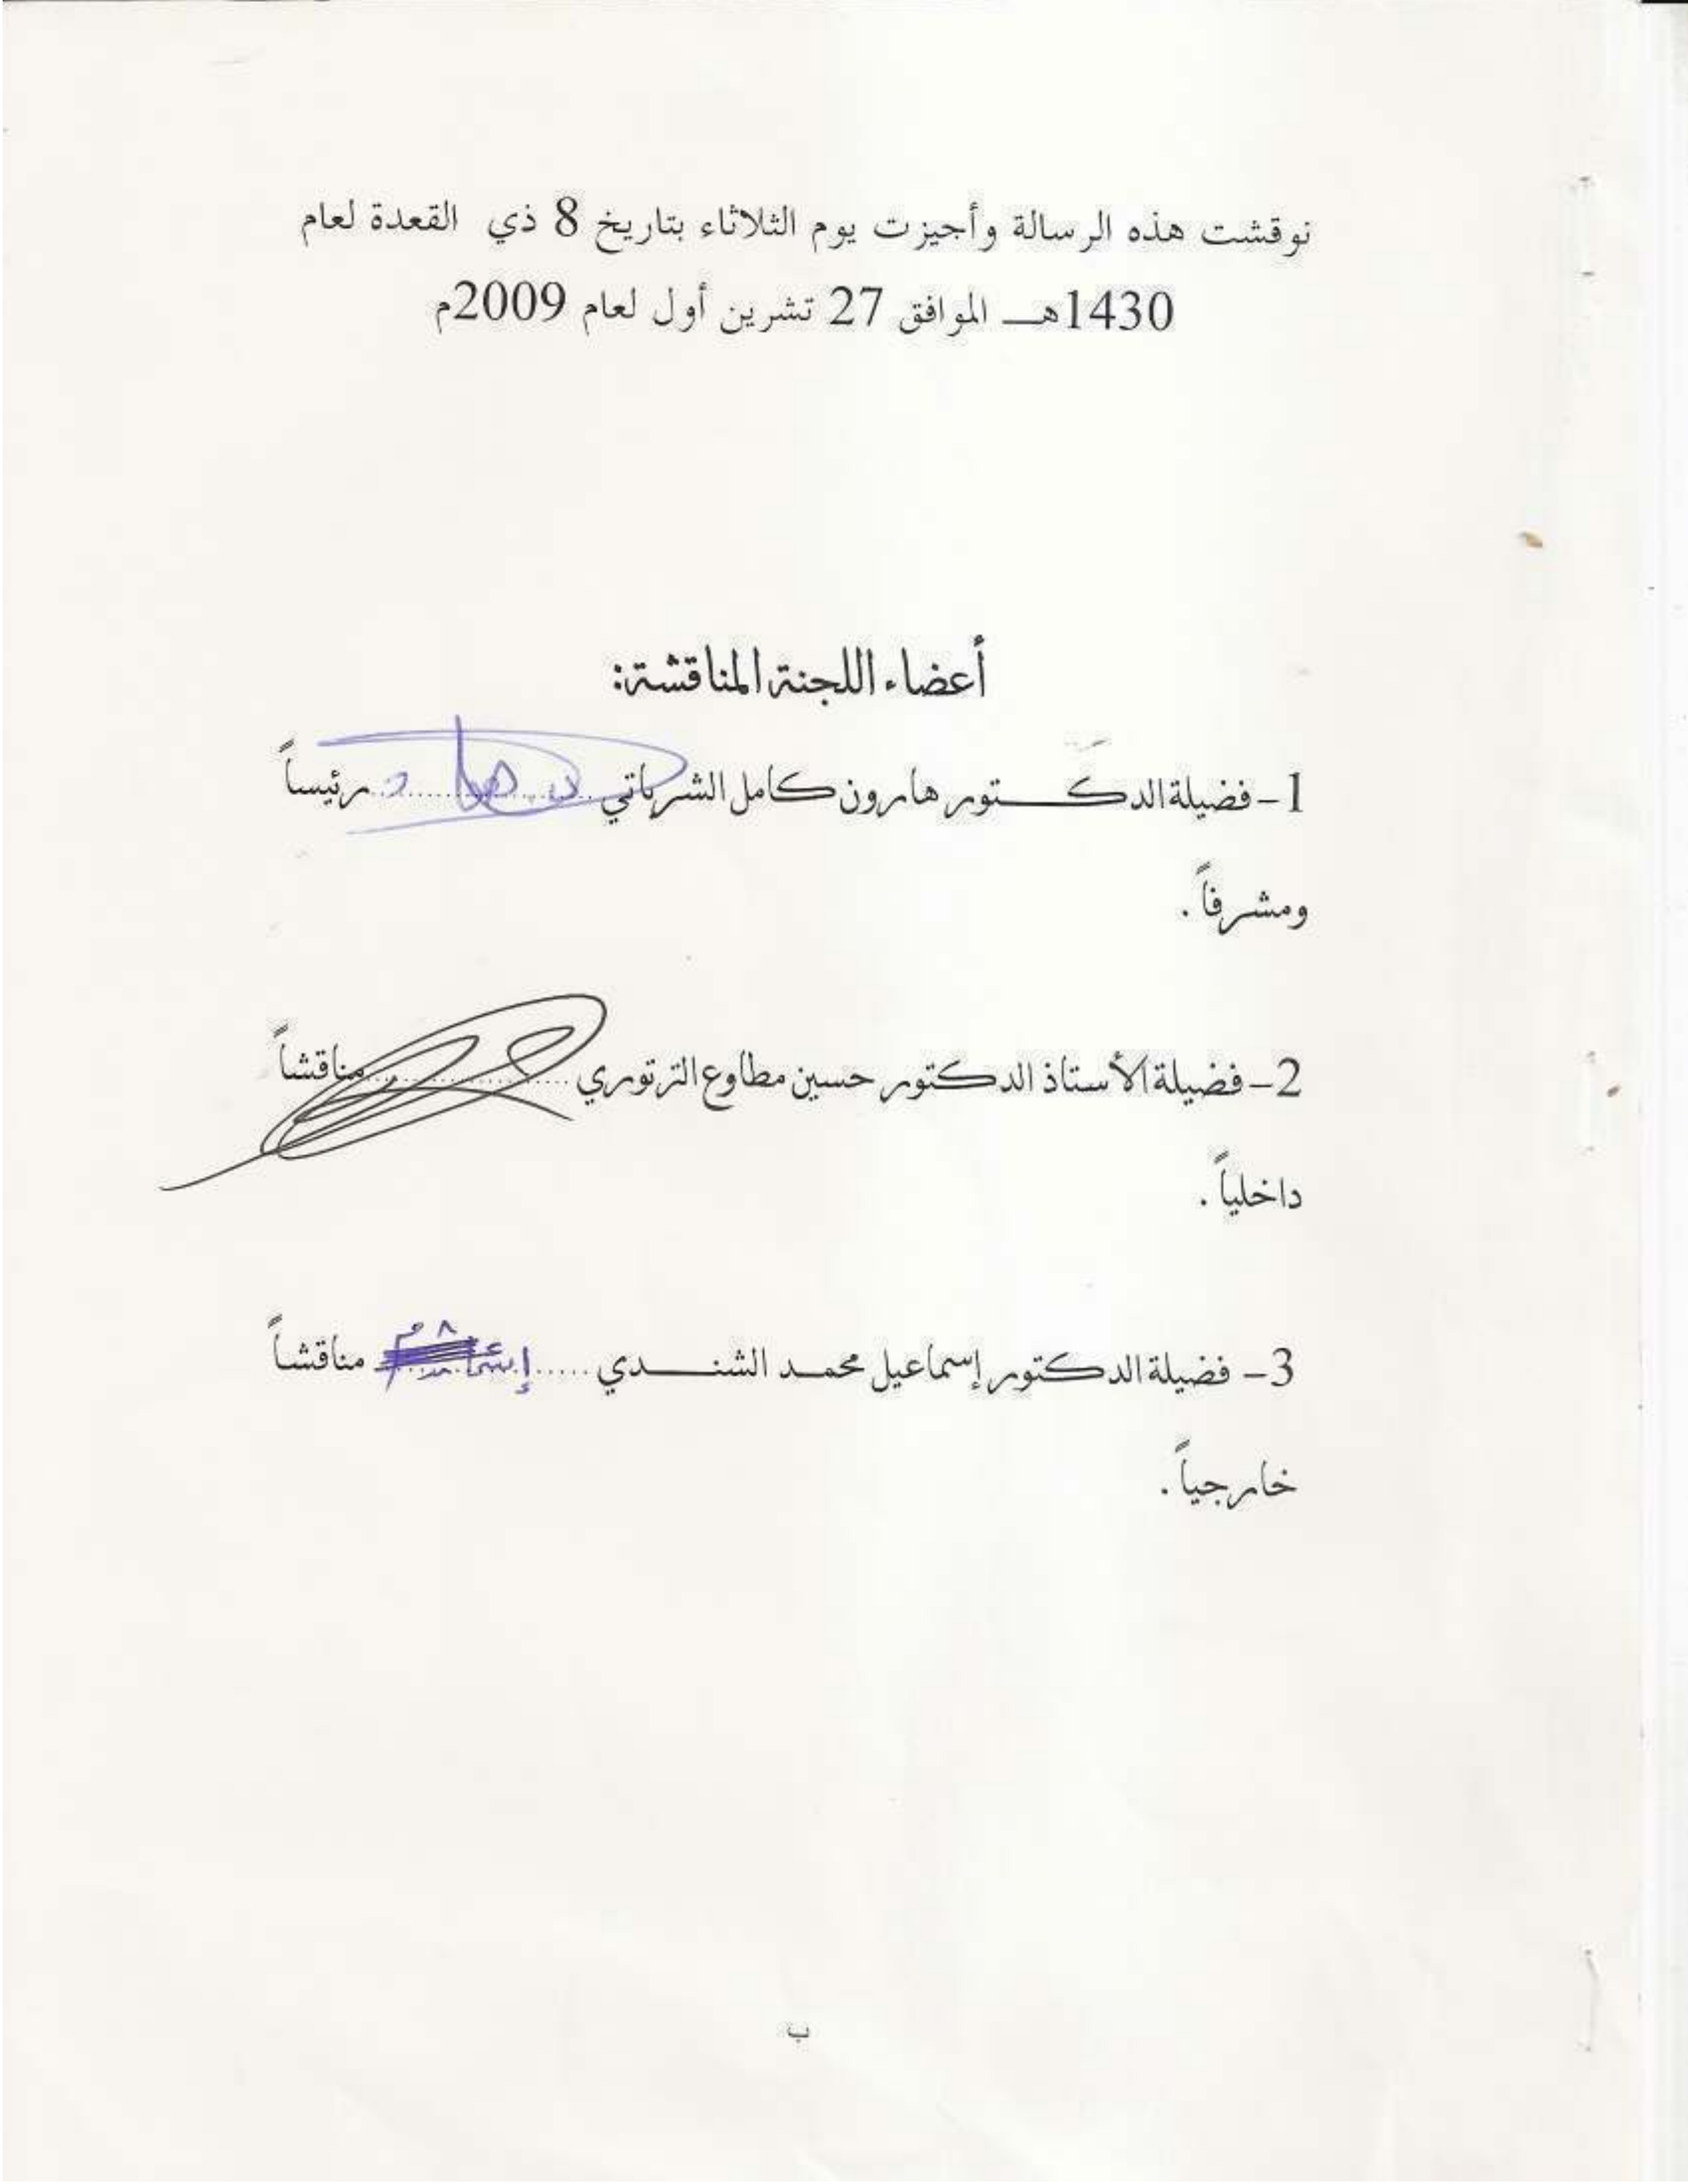 نوقشت هذه الرسالة وأجيزت يوم الثلاثاء بتاريخ 8 ذي القعدة لعام
1430هـ الموافق 27 تشرين أول لعام 2009م
أعضاء اللجنة المناقشة:
1- فضيلة الدكتور هارون كامل الشرباتي .................... رئيساً
ومشرفاً .
2- فضيلة الأستاذ الدكتور حسين مطاوع الترتوري .................... مناقشاً
داخلياً .
3- فضيلة الدكتور إسماعيل محمد الشندي .................... مناقشاً
خارجياً .
ب